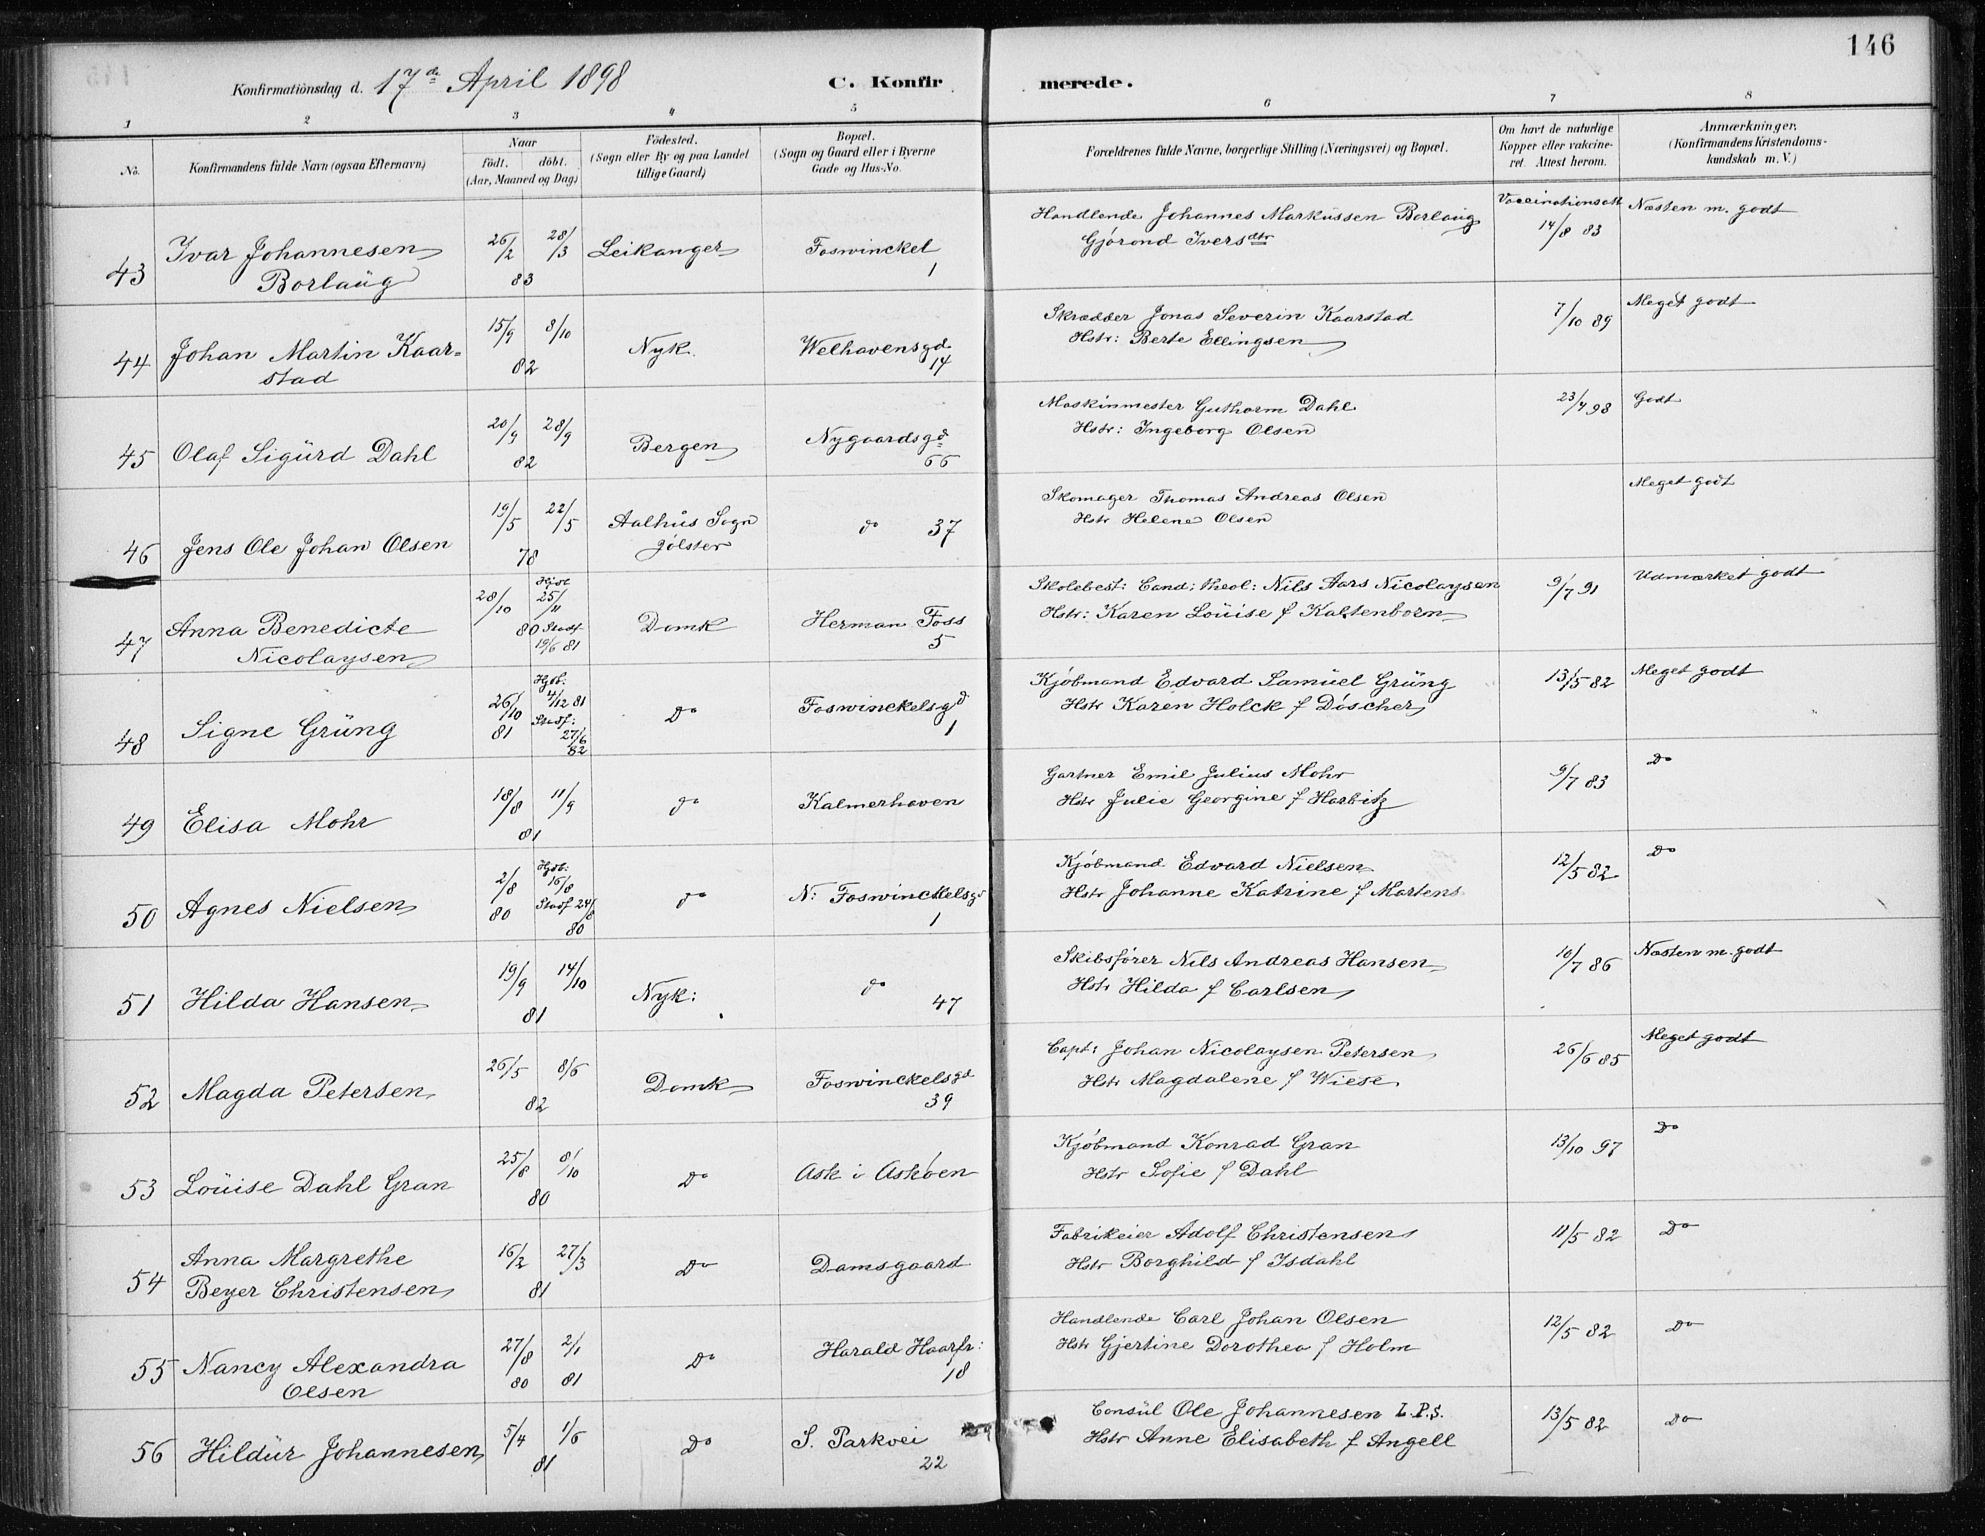 146
Konfirmationsdag d. 17de April 1898 C. Konfirmerede.
1 2 3 4 5 6 7 8
No. Konfirmandens fulde Navn (ogsaa Efternavn) Naar födt. döbt. (Aar, Maaned og Dag) Födested. (Sogn eller By og paa Landet tillige Gaard) Bopæl. (Sogn og Gaard eller i Byerne Gade og Hus-No. Forældrenes fulde Navne, borgerlige Stilling (Næringsvei) og Bopæl. Om havt de naturlige Kopper eller vakcineret. Attest herom. Anmærkninger. (Konfirmandens Kristendomskundskab m. V.)
43 Ivar Johannesen Borlaug 26/2 28/3 83 Leikanger Foswinckel 1 Handlende Johannes Markussen Borlaug Gjørond Iversdtr Vaccinationsatt 14/8 83 Næsten m. godt
44 Johan Martin Kaarstad 15/9 8/10 82 Nyk. Welhavensgd 14 Skrædder Jonas Severin Kaarstad Hstr: Berte Ellingsen 7/10 89 Meget godt
45 Olaf Sigurd Dahl 20/9 28/9 82 Bergen Nygaardsgd 66 Maskinmester Guthorm Dahl Hstr: Ingeborg Olsen 23/4 98 Godt
46 Jens Ole Johan Olsen 19/5 22/5 78 Aalhus Sogn Jølster do 37 Skomager Thomas Andreas Olsen Hstr Helene Olsen Meget godt
47 Anna Benedicte Nicolaysen 28/10 80 Hjdt 25/11 Stadf 19/6 81 Domk Herman Foss 5 Skolebest: Cand: theol: Nils Aars Nicolaysen Hstr: Karen Louise f Kaltenborn 9/7 91 Udmærket godt
48 Signe Grung 26/10 81 Hjdb: 4/12 81 Stadf: 27/6 82 Do Foswinckelsgd 1 Kjøbmand Edvard Samuel Grung Hstr Karen Holck f Døscher 13/5 82 Meget godt
49 Elisa Mohr 18/8 11/9 81 do Kalmerhaven Gartner Emil Julius Mohr Hstr Julie Georgine f Harbitz 9/7 83 Do
50 Agnes Nielsen 2/8 80 Hjdb: 16/8 Stadf 24/8 80 do N: Foswinckelsgd 1 Kjøbmand Edvard Nielsen Hstr Johanne Katrine f Martens 12/5 82 Do
51 Hilda Hansen 19/9 14/10 81 Nyk: do 47 Skibsfører Nils Andreas Hansen Hstr Hilda f Carlsen 10/7 86 Næsten m. godt
52 Magda Petersen 26/5 8/6 82 Domk Foswinckelsgd 39 Capt: Johan Nicolaysen Petersen Hstr Magdalene f Wiese 26/6 85 Meget godt
53 Louise Dahl Gran 25/8 8/10 80 Do Ask i Askøen Kjøbmand Konrad Gran Hstr Sofie f Dahl 13/10 97 Do
54 Anna Margrethe Beyer Christensen 16/2 27/3 81 Do Damsgaard Fabrikeier Adolf Christensen Hstr Borghild f Isdahl 11/5 82 Do
55 Nancy Alexandra Olsen 27/8 80 2/1 81 Do Harald Haarfr: 18 Handlende Carl Johan Olsen Hstr Gjertine Dorothea f Holm 12/5 82 Do
56 Hildur Johannesen 5/4 1/6 81 Do S. Parkvei 22 Consul Ole Johannesen L.P.S. Hstr Anne Elisabeth f Angell 13/5 82 Do